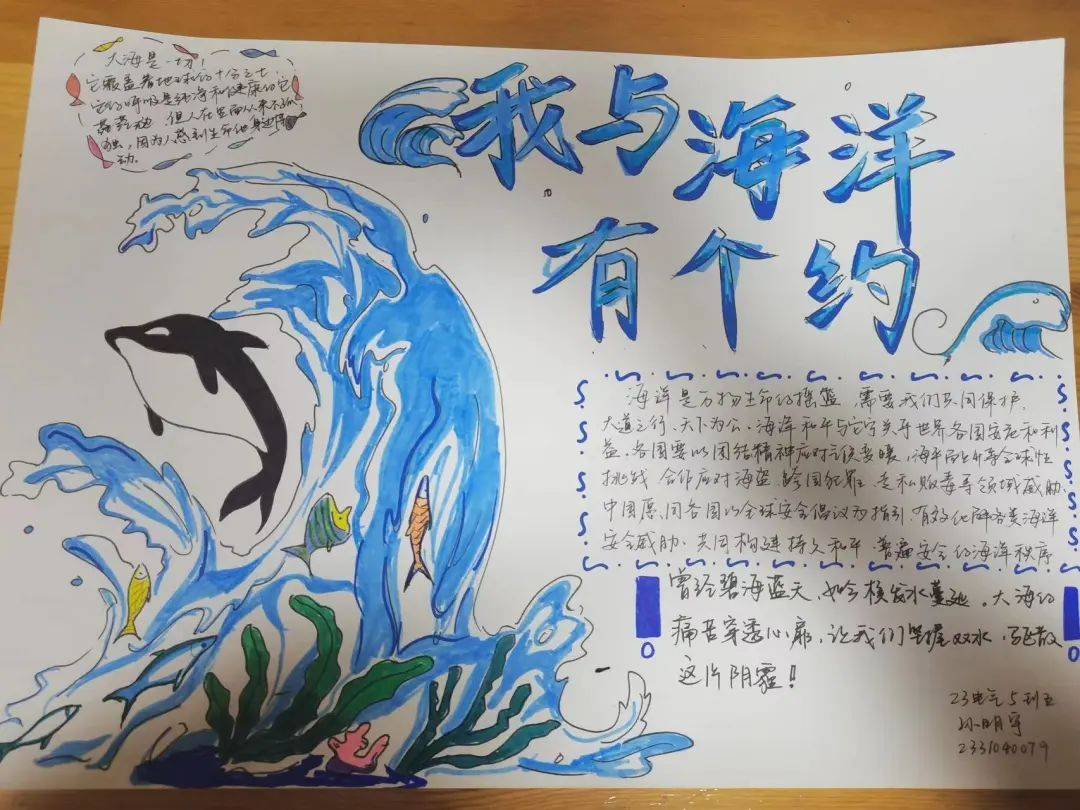 大海是一切！
它覆盖着地球的十分之七，
它的呼吸是纯净和健康的它
但人在里面从来不孤
独，因为人感到生命他身边
动。
我与海洋
有个约
海洋是万物生命的摇篮，需要我们共同保护，
大道之行，天下为公，海洋和平与安宁关乎世界各国安危和利
益，各国要以团结精神应对气候变暖，海平面上升等全球性
挑战 合作应对海盗 跨国犯罪 走私贩毒等领域威胁、
中国愿同各国以全球安全倡议为指引，有效化解各类海洋
安全威胁、共同构建持久和平、普遍安全的海洋秩序
曾经碧海蓝天，如今核发水蔓延，大海的
痛苦穿透心扉，让我们 双水，驱散
这片阴霾！
23电气5班
孙明宇
2331040079